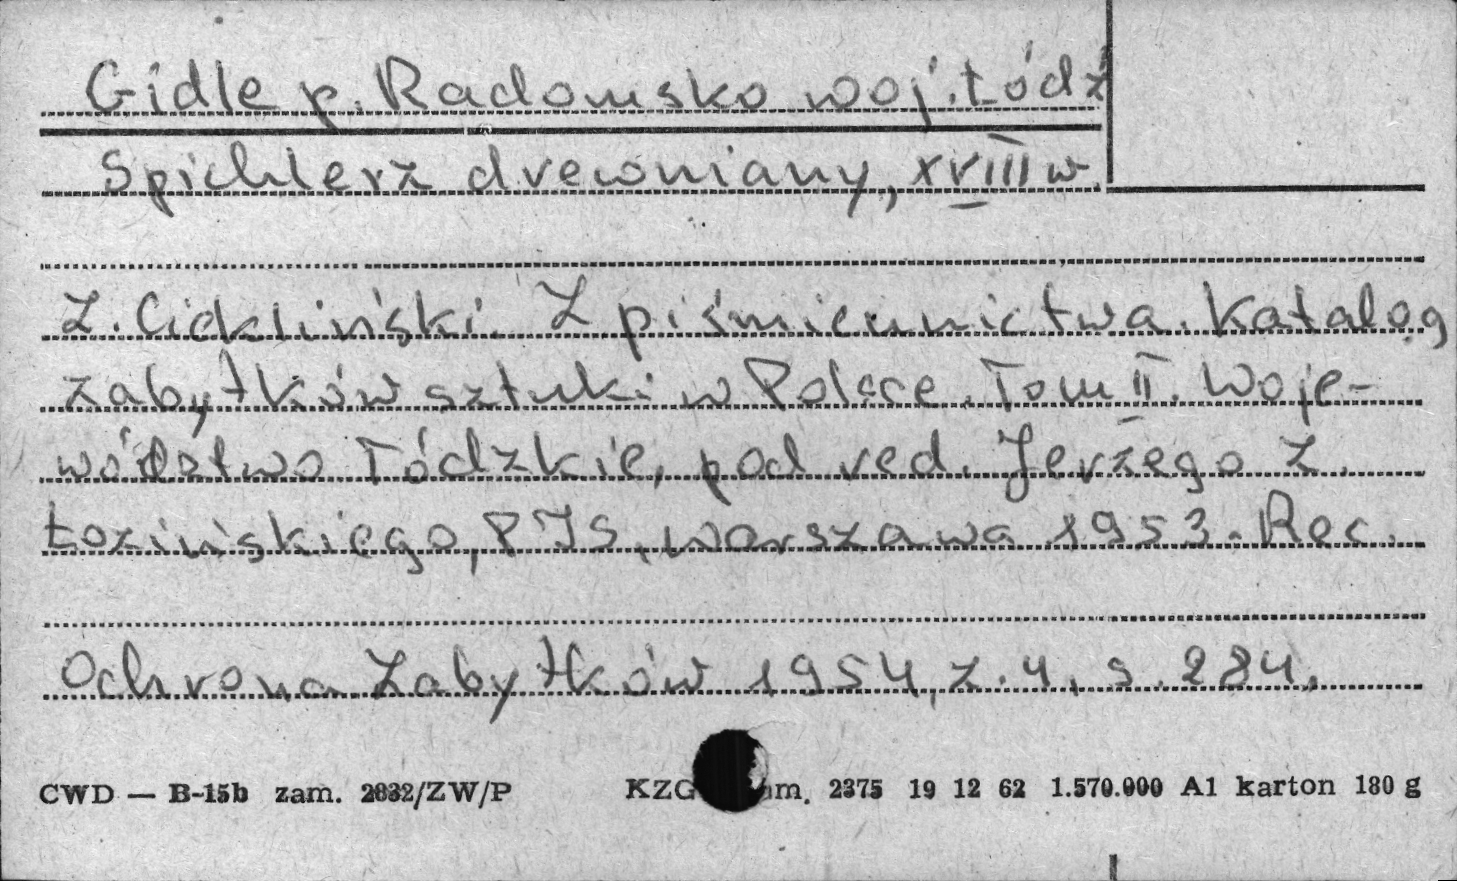 Gidle p. Radomsko woj. Łódź
Spichlerz drewniany, XVIII w.
Z. Ciekliński. Z piśmiennictwa. Katalog
zabytków sztuki w Polsce. Tom II. Woje-
wództwo łódzkie, pod red. Jerzego Z.
Łozińskiego, PIS, Warszawa 1953. Rec.
Ochrona Zabytków 1954, z. 4, s. 284.
CWD — B-15b zam. 2832/ZW/P KZG zam. 2375 19 12 62 1.570.000 A1 karton 180 g